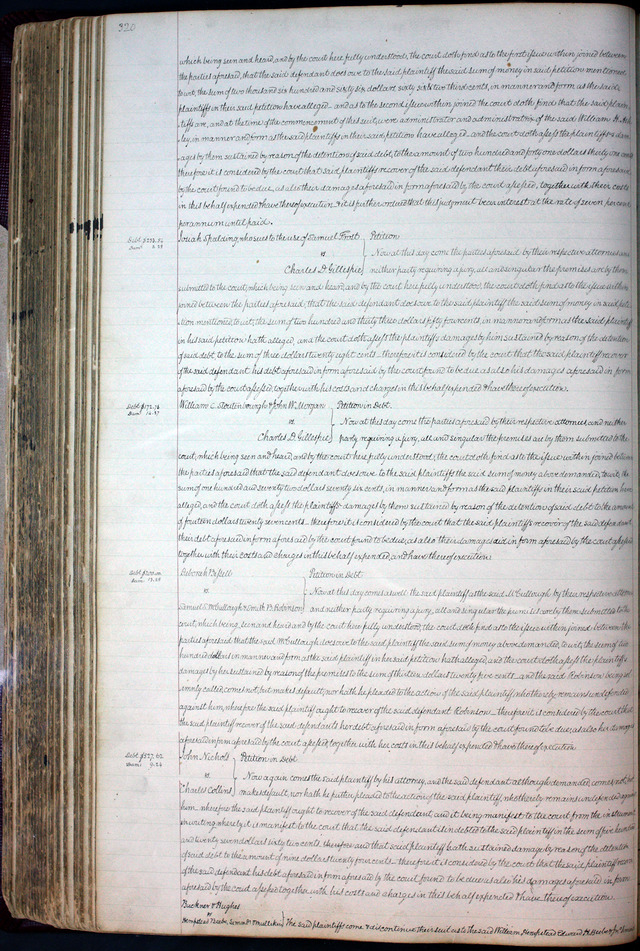 320
which being seen and heard, and by the court here fully understood, the court doth find as to the first issue within joined between
the parties aforesaid, that the said defendant does owe to the said plaintiff the said sum of money in said petition mentioned
to wit, the sum of two thousand six hundred and sixty six dollars sixty six & two third cents, in manner and form as the said
plaintiffs in their said petition have alleged and as to the second issue within joined the court doth find that the said plain
tiffs are, and at the time of the commencement of this suit, were administrator and administratrix of the said William H.
ley, in manner and form as the said plaintiffs in their said petition have alleged and the court doth assess the plaintiffs dam
ages by them sustained by reason of the detention of said debt, to the amount of two hundred and forty one dollars thirty one cents
therefore it is considered by the court that said plaintiffs recover of the said defendant their debt aforesaid in form aforesaid
by the court found to be due, as also their damages aforesaid in form aforesaid by the court assessed, together with their costs
in this behalf expended & have thereof execution. & it is further ordered that this judgment bear interest at the rate of seven per cent
per annum until paid.
Debt $233.54
Dam: 3.28
Josiah Spalding who sues to the use of Samuel Frost
vs
Charles D. Gillespie
Petition
Now at this day come the parties aforesaid by their respective attornies and
neither party requiring a jury, all and singular the premises are by them
submitted to the court, which being seen and heard, and by the court here fully understood, the court doth find as to the issue within
joined between the parties aforesaid, that the said defendant does owe to the said plaintiff the said sum of money in said peti
tion mentioned, to wit, the sum of two hundred and thirty three dollars fifty four cents, in manner and form as the said plaintiff
in his said petition hath alleged, and the court doth assess the plaintiffs damages by him sustained by reason of the detention
of said debt to the sum of three dollars twenty eight cents. therefore it is considered by the court that the said plaintiff recover
of the said defendant his debt aforesaid in form aforesaid by the court found to be due as also his damages aforesaid in form
aforesaid by the court assessed, together with his costs and charges in this behalf expended & have thereof execution.
Debt $172.76
Dam: 14.27
William C. Stoutenborough & John W. Morgan
vs
Charles D. Gillespie
Petition in Debt.
Now at this day come the parties aforesaid by their respective attornies and neither
party requiring a jury, all and singular the premises are by them submitted to the
court, which being seen and heard, and by the court here fully understood, the court doth find as to the issue within joined between
the parties aforesaid that the said defendant does owe to the said plaintiffs the said sum of money above demanded, to wit, the
sum of one hundred and seventy two dollars seventy six cents, in manner and form as the said plaintiffs in their said petition have
alleged, and the court doth assess the plaintiffs damages by them sustained by reason of the detention of said debt to the amount
of fourteen dollars twenty seven cents therefore it is considered by the court that the said plaintiffs recover of the said defendant
their debt aforesaid in form aforesaid by the court found to be due, as also their damages aforesaid in form aforesaid by the court assessed
together with their costs and charges in this behalf expended, and have thereof execution.
Deborah Bissell
vs
Samuel McCullough & Smith B. Robinson
Petition in Debt
Now at this day comes as well the said plaintiff as the said McCullough by their respective attornies
and neither party requiring a jury, all and singular the premises are by them submitted to the
court, which being seen and heard and by the court here fully understood, the court doth find as to the issue within joined between the
parties aforesaid that the said McCullough does owe to the said plaintiff the said sum of money above demanded, to wit, the sum of
hundred dollars in manner and form as the said plaintiff in her said petition hath alleged, and the court doth assess the plaintiffs
damages by her sustained by reason of the premises to the sum of thirteen dollars twenty five cents and the said Robinson being sol
emnly called, comes not, but makes default, nor hath he pleaded to the action of the said plaintiff, whereby remains undefended
against him, wherefore the said plaintiff ought to recover of the said defendant Robinson therefore it is considered by the court that
the said plaintiff recover of the said defendants her debt aforesaid in form aforesaid by the court found to be due, as also her damages
aforesaid in form aforesaid by the court assessed, together with her costs in this behalf expended & have thereof execution.
Debt $527.62
Dam: 9.24
John Nichols
vs
Charles Collins
Petition in Debt
Now again comes the said plaintiff by his attorney, and the said defendant although demanded, comes not but
makes default, nor hath he further pleaded to the action of the said plaintiff, whereby remains undefended against
him. wherefore the said plaintiff ought to recover of the said defendant, and it being manifest to the court from the instrument
in writing whereby it is manifest to the court that the said defendant is indebted to the said plaintiff in the sum of five hundred
and twenty seven dollars sixty two cents. and that said plaintiff hath sustained damage by reason of the detention
of said debt to the amount of nine dollars twenty four cents therefore it is considered by the court that the said plaintiff recover
of the said defendant his debt aforesaid in form aforesaid by the court found to be due as also his damages aforesaid in form
aforesaid by the court assessed together with his costs and charges in this behalf expended & have thereof execution.
Buckner & Hughes
vs
Hempstead & Beebe,
The said plaintiffs come & discontinue their suit as to the said William Hempstead Edward H. Beebe